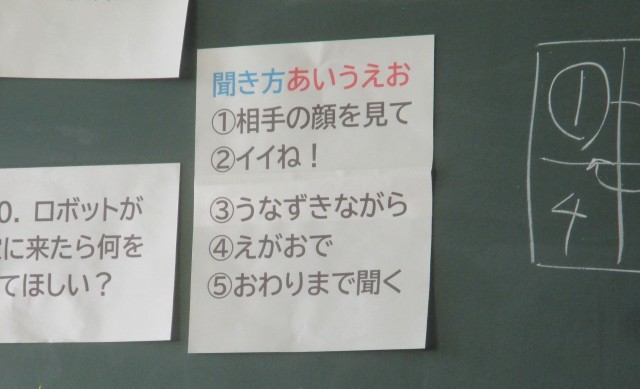 聞き方あいうえお
①相手の顔を見て
②イイね！
③うなずきながら
④えがおで
⑤おわりまで聞く
0. ロボットが
に来たら何を
てほしい？
①
4